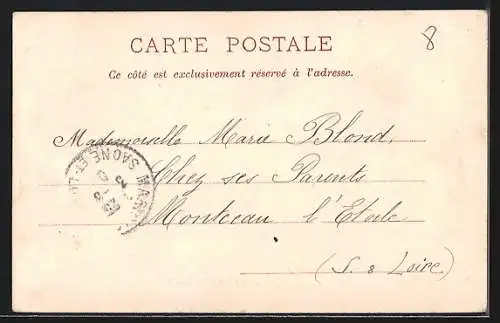 8
CARTE POSTALE
Ce côté est exclusivement réservé à l'adresse.
Mademoiselle Marie Blond,
Chez ses Parents
Montceau l'Etoile
(S. & Loire)
SAONE-ET-L